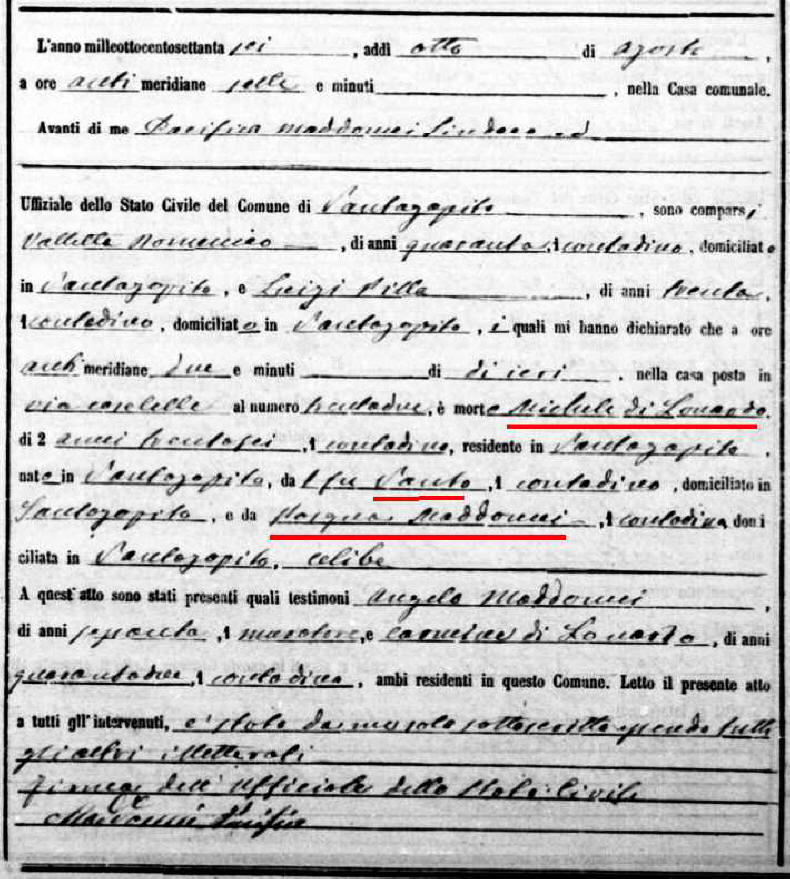 L'anno milleottocentosettanta sei, addì otto di agosto,
a ore anti meridiane sette e minuti, nella Casa comunale.
Avanti di me Pacifico Maddonni Sindaco ed
Uffiziale dello Stato Civile del Comune di Santagapito, sono comparsi
Valletta Domenico, di anni quaranta, contadino, domiciliato
in Santagapito, e Luigi Villa, di anni trenta,
contadino, domiciliato in Santagapito, i quali mi hanno dichiarato che a ore
anti meridiane due e minuti di di ieri, nella casa posta in
via al numero trentadue, è morto Michele di Lonardo
di anni trentasei, contadino, residente in Santagapito,
nato in Santagapito, da fu Santo, contadino, domiciliato in
Santagapito, e da Maddonni, contadina domi
ciliata in Santagapito, celibe
A quest'atto sono stati presenti quali testimoni Angelo Maddonni,
di anni, e di Lonardo, di anni
quarantadue, contadino, ambi residenti in questo Comune. Letto il presente atto
a tutti gl'intervenuti, è stato da me solo sottoscritto essendo tutti
gli altri illetterati
Firma dell'Ufficiale dello Stato Civile
Maddonni Pacifico